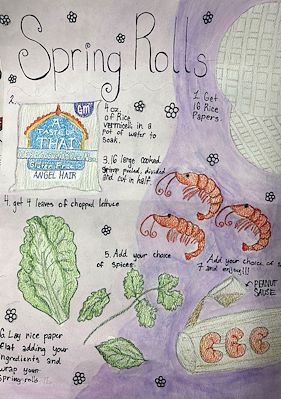 Spring Rolls
1. Get
16 Rice
Papers.
2.
GM
A
TASTE OF
THAI
Gluten Free
ANGEL HAIR
4 oz.
of Rice
vermicelli in a
pot of water to
soak.
3. 16 large cooked
shrimp peeled, divided
and cut in half
4. get 4 leaves of chopped lettuce
5. Add your choice
of spices.
6. Lay rice paper
flat adding your
ingredients and
wrap your
spring-rolls
7. Add your choice of s
and enjoy!!!
PEANUT
SAUSE